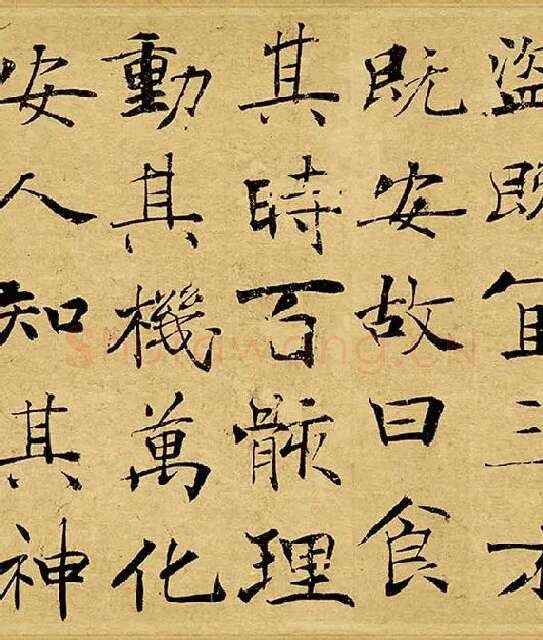 盜既宜三才
既安故曰食
其時百骸理
動其機萬化
安人知其神
Shufawang.CN